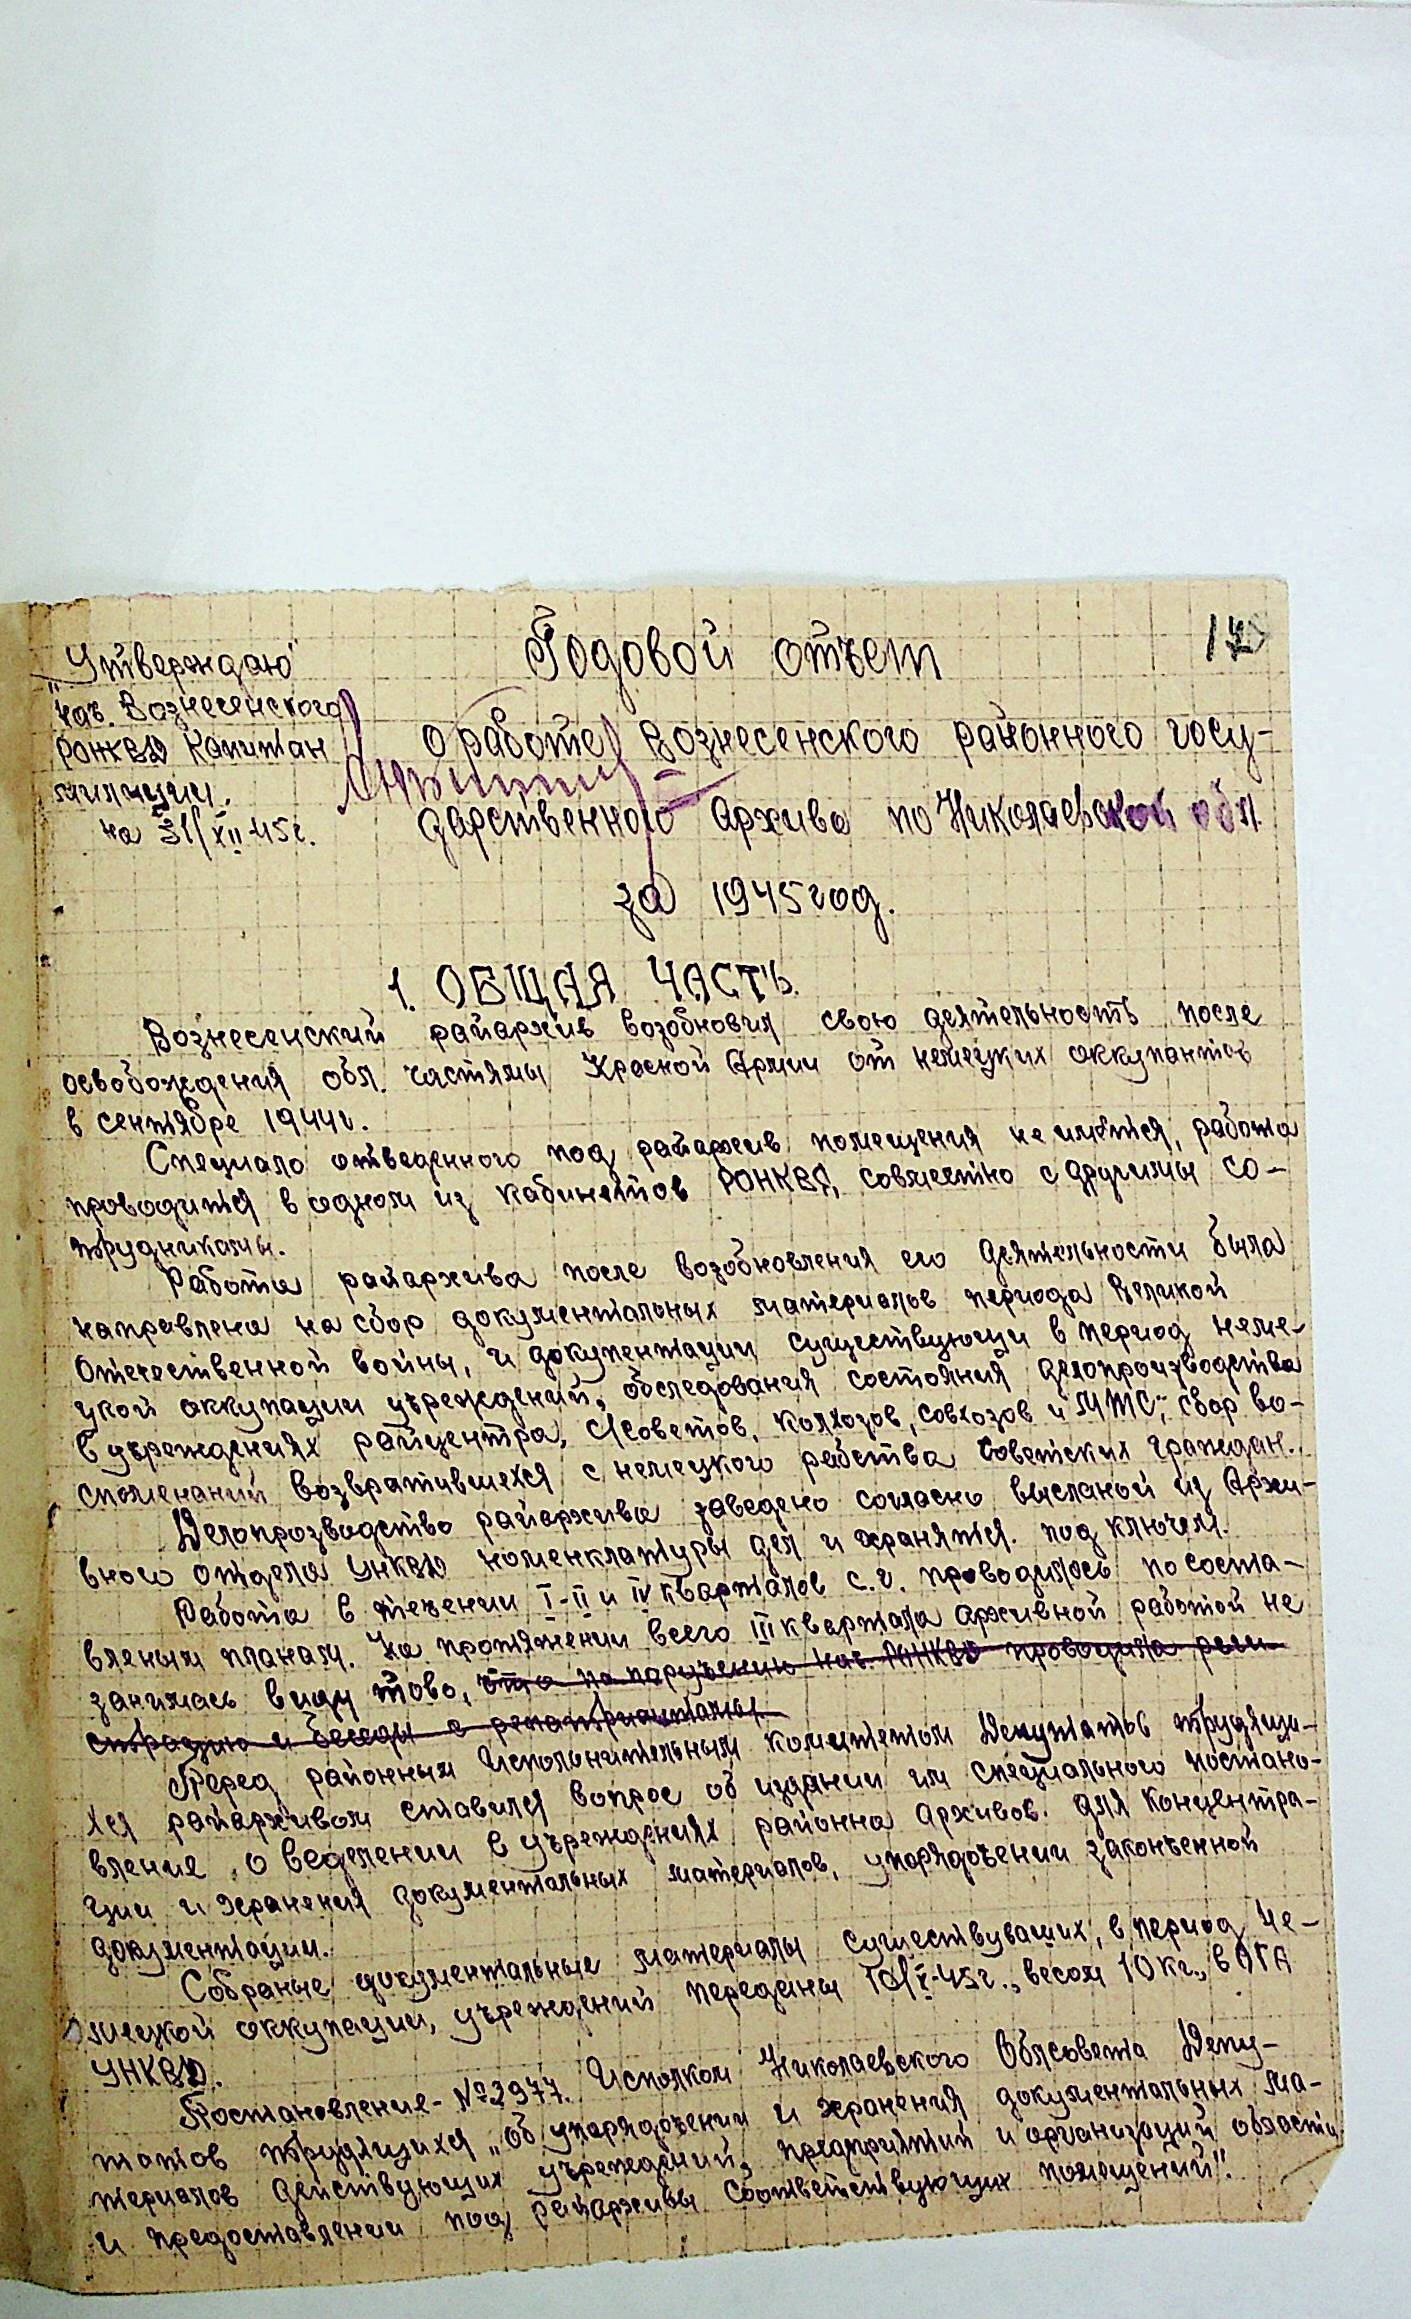 Годовой отчет
"Утверждаю"
нач. Вознесенского
РОНКВД Капитан
милиции.
на 31/XII 45г.
о работе Вознесенского районного госу-
дарственного архива по Николаевской обл.
за 1945 год.
1. ОБЩАЯ ЧАСТЬ.
Вознесенский райархив возобновил свою деятельность после
освобождения обл. частямы Красной Армии от немецких оккупантов
в сентябре 1944г.
Специало отведенного под райархив помещения не имется, работа
проводится в одном из кабинетов РОНКВД, совместно с другимы со-
трудникамы.
Работа райархива после возобновления его деятельности была
направлена на сбор документальных материалов периода Великой
Отечественной войны, и документации существующи в период неме-
цкой оккупации учреждений, обследования состояния делопроизводства
в учреждениях райцентра, с/советов, колхозов, совхозов и МТС; сбор во-
споменаний возвратившехся с немецкого рабства Советских граждан.
Делопрозводство райархива заведено согласно высланой из Архи-
вного отдела УНКВД номенклатуры дел и хранятся. под ключем.
Работа в течении I-II и IV кварталов с.г. проводилось по соста-
вленым планам. На протяжении всего III квартала архивной работой не
занималась ввиду тово, что по поручению нач. РОНКВД проводила реги-
страцию и беседы с репатриантамы.
Перед районным Исполнительным комитетом Депутатов трудящи-
хся райархивом ставился вопрос об издании им специального постано-
вление о веделении в учреждениях районна архивов. для концентра-
ции и хранения документальных материалов, упорядочении законченной
документации.
Собраные документальные материалы существувших, в период не-
мецкой оккупации, учреждений переданы 10/V-45г., весом 10 кг., в ОГА
УНКВД.
Постановление - №2977. Исполком Николаевского Облсовета Депу-
татов трудящихся "об упорядочении и хранения документальных ма-
териалов действующих учреждений, предприятий и организаций области
и предоставлении под райархивы соответствующих помещений".